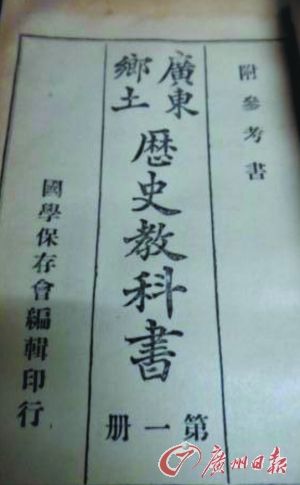 附參考書
廣東
鄉土
歷史教科書
第一册
國學保存會編輯印行
廣州日報